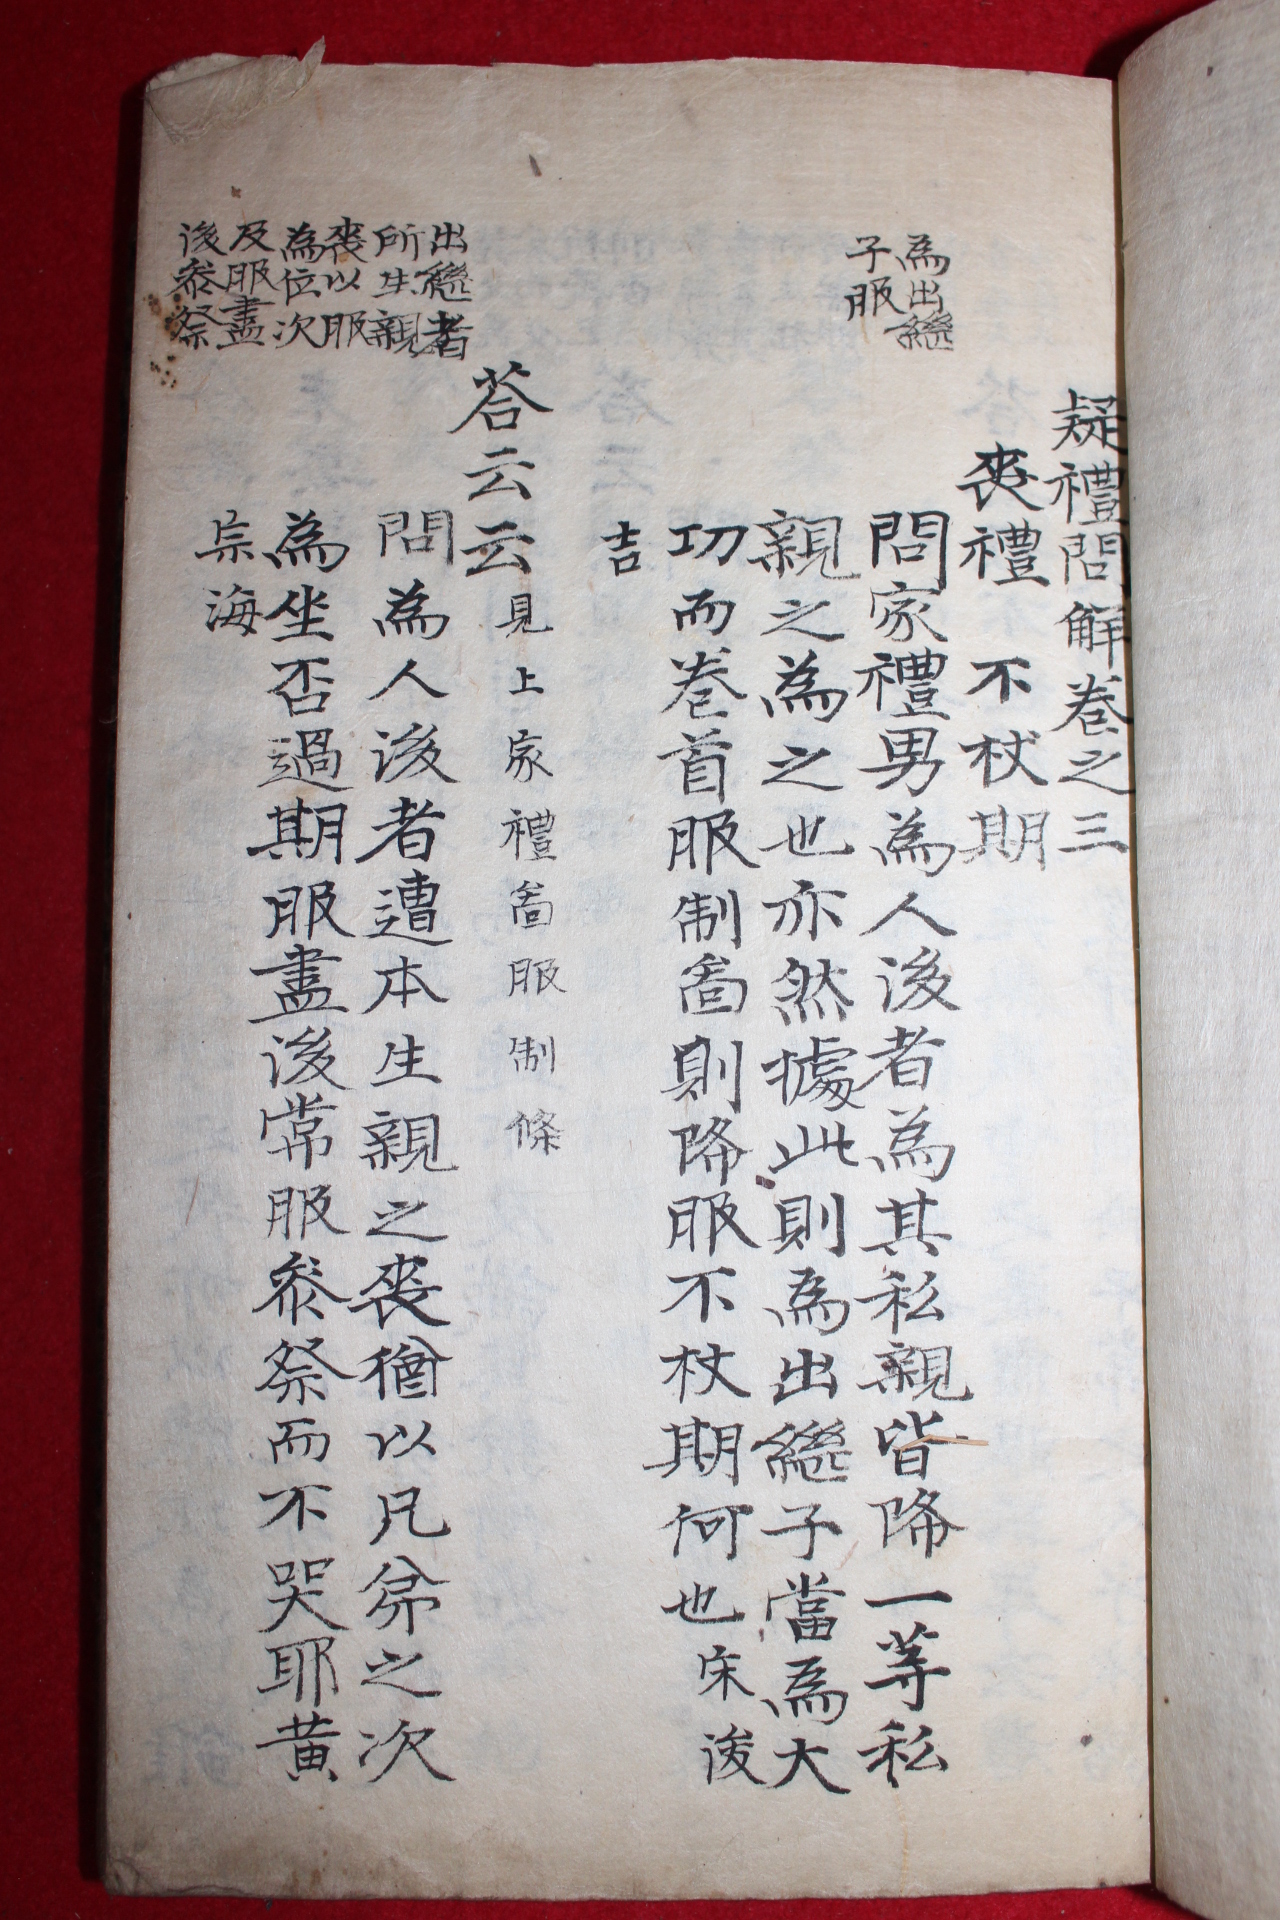 疑禮問解卷之三
喪禮 不杖期
為出繼
子服
問家禮男為人後者為其私親皆降一等私
親之為之也亦然據此則為出繼子當為大
功而卷首服制啚則降服不杖期何也宋浚
吉
答云云見上家禮啚服制條
出繼者
所生親
喪以服
為位次
及服盡
後叅祭
問為人後者遭本生親之喪猶以凡弟之次
為坐否過期服盡後常服叅祭而不哭耶黄
宗海